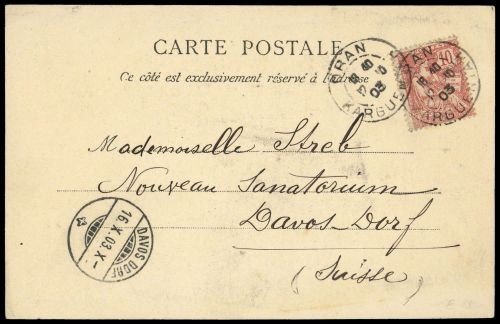 CARTE POSTALE
Ce côté est exclusivement réservé à l'adresse
ORAN
KARGUE
03
10
Mademoiselle Streb
Nouveau Sanatorium
Davos-Dorf
(Suisse)
DAVOS DORF
16.X.03.X-